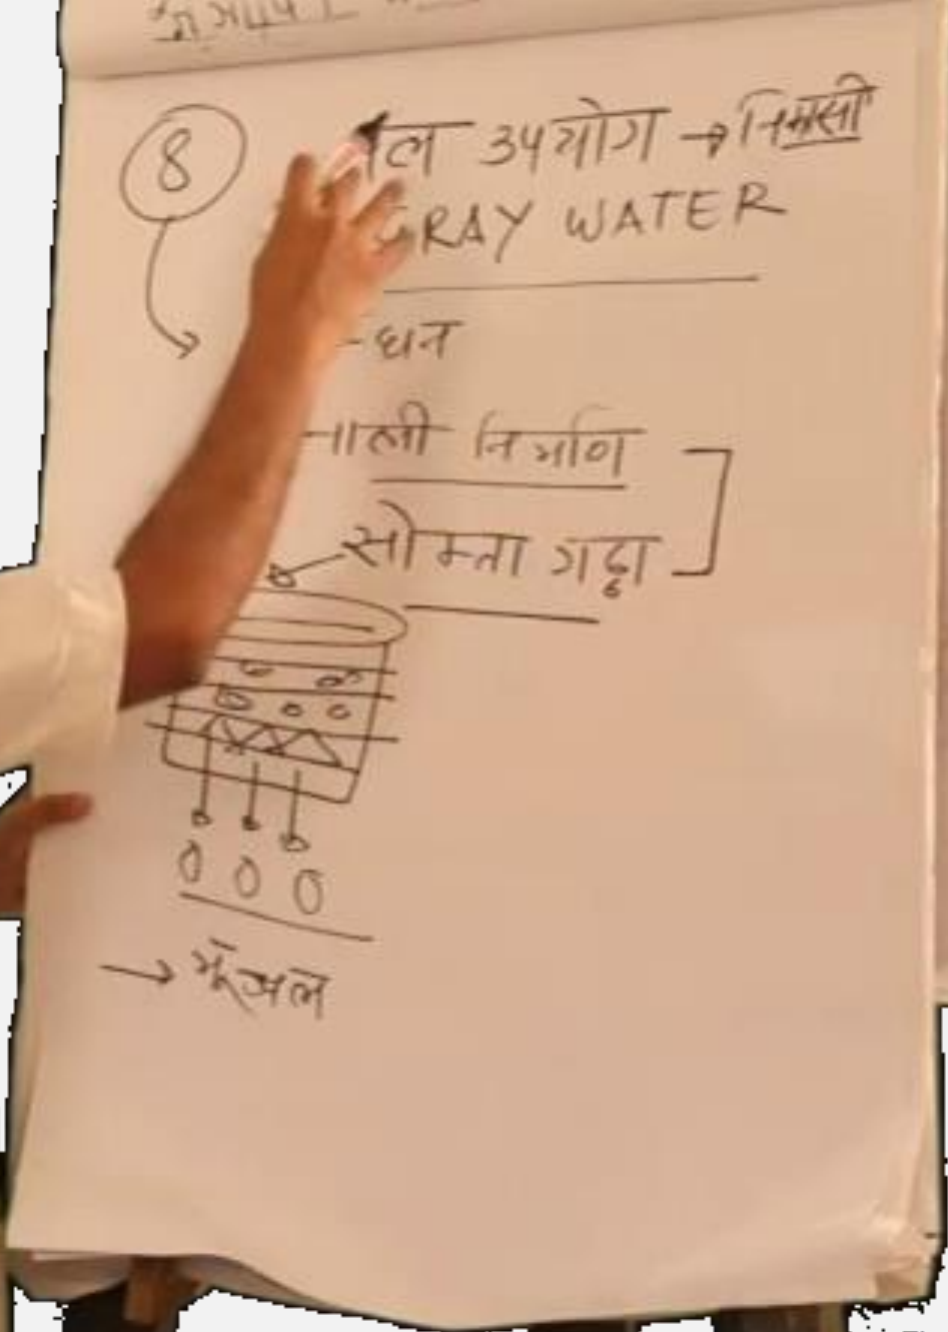 8
जल उपयोग → निकासी
GRAY WATER
धन
नाली निर्माण
सोख्ता गड्ढा
000
→ भूजल